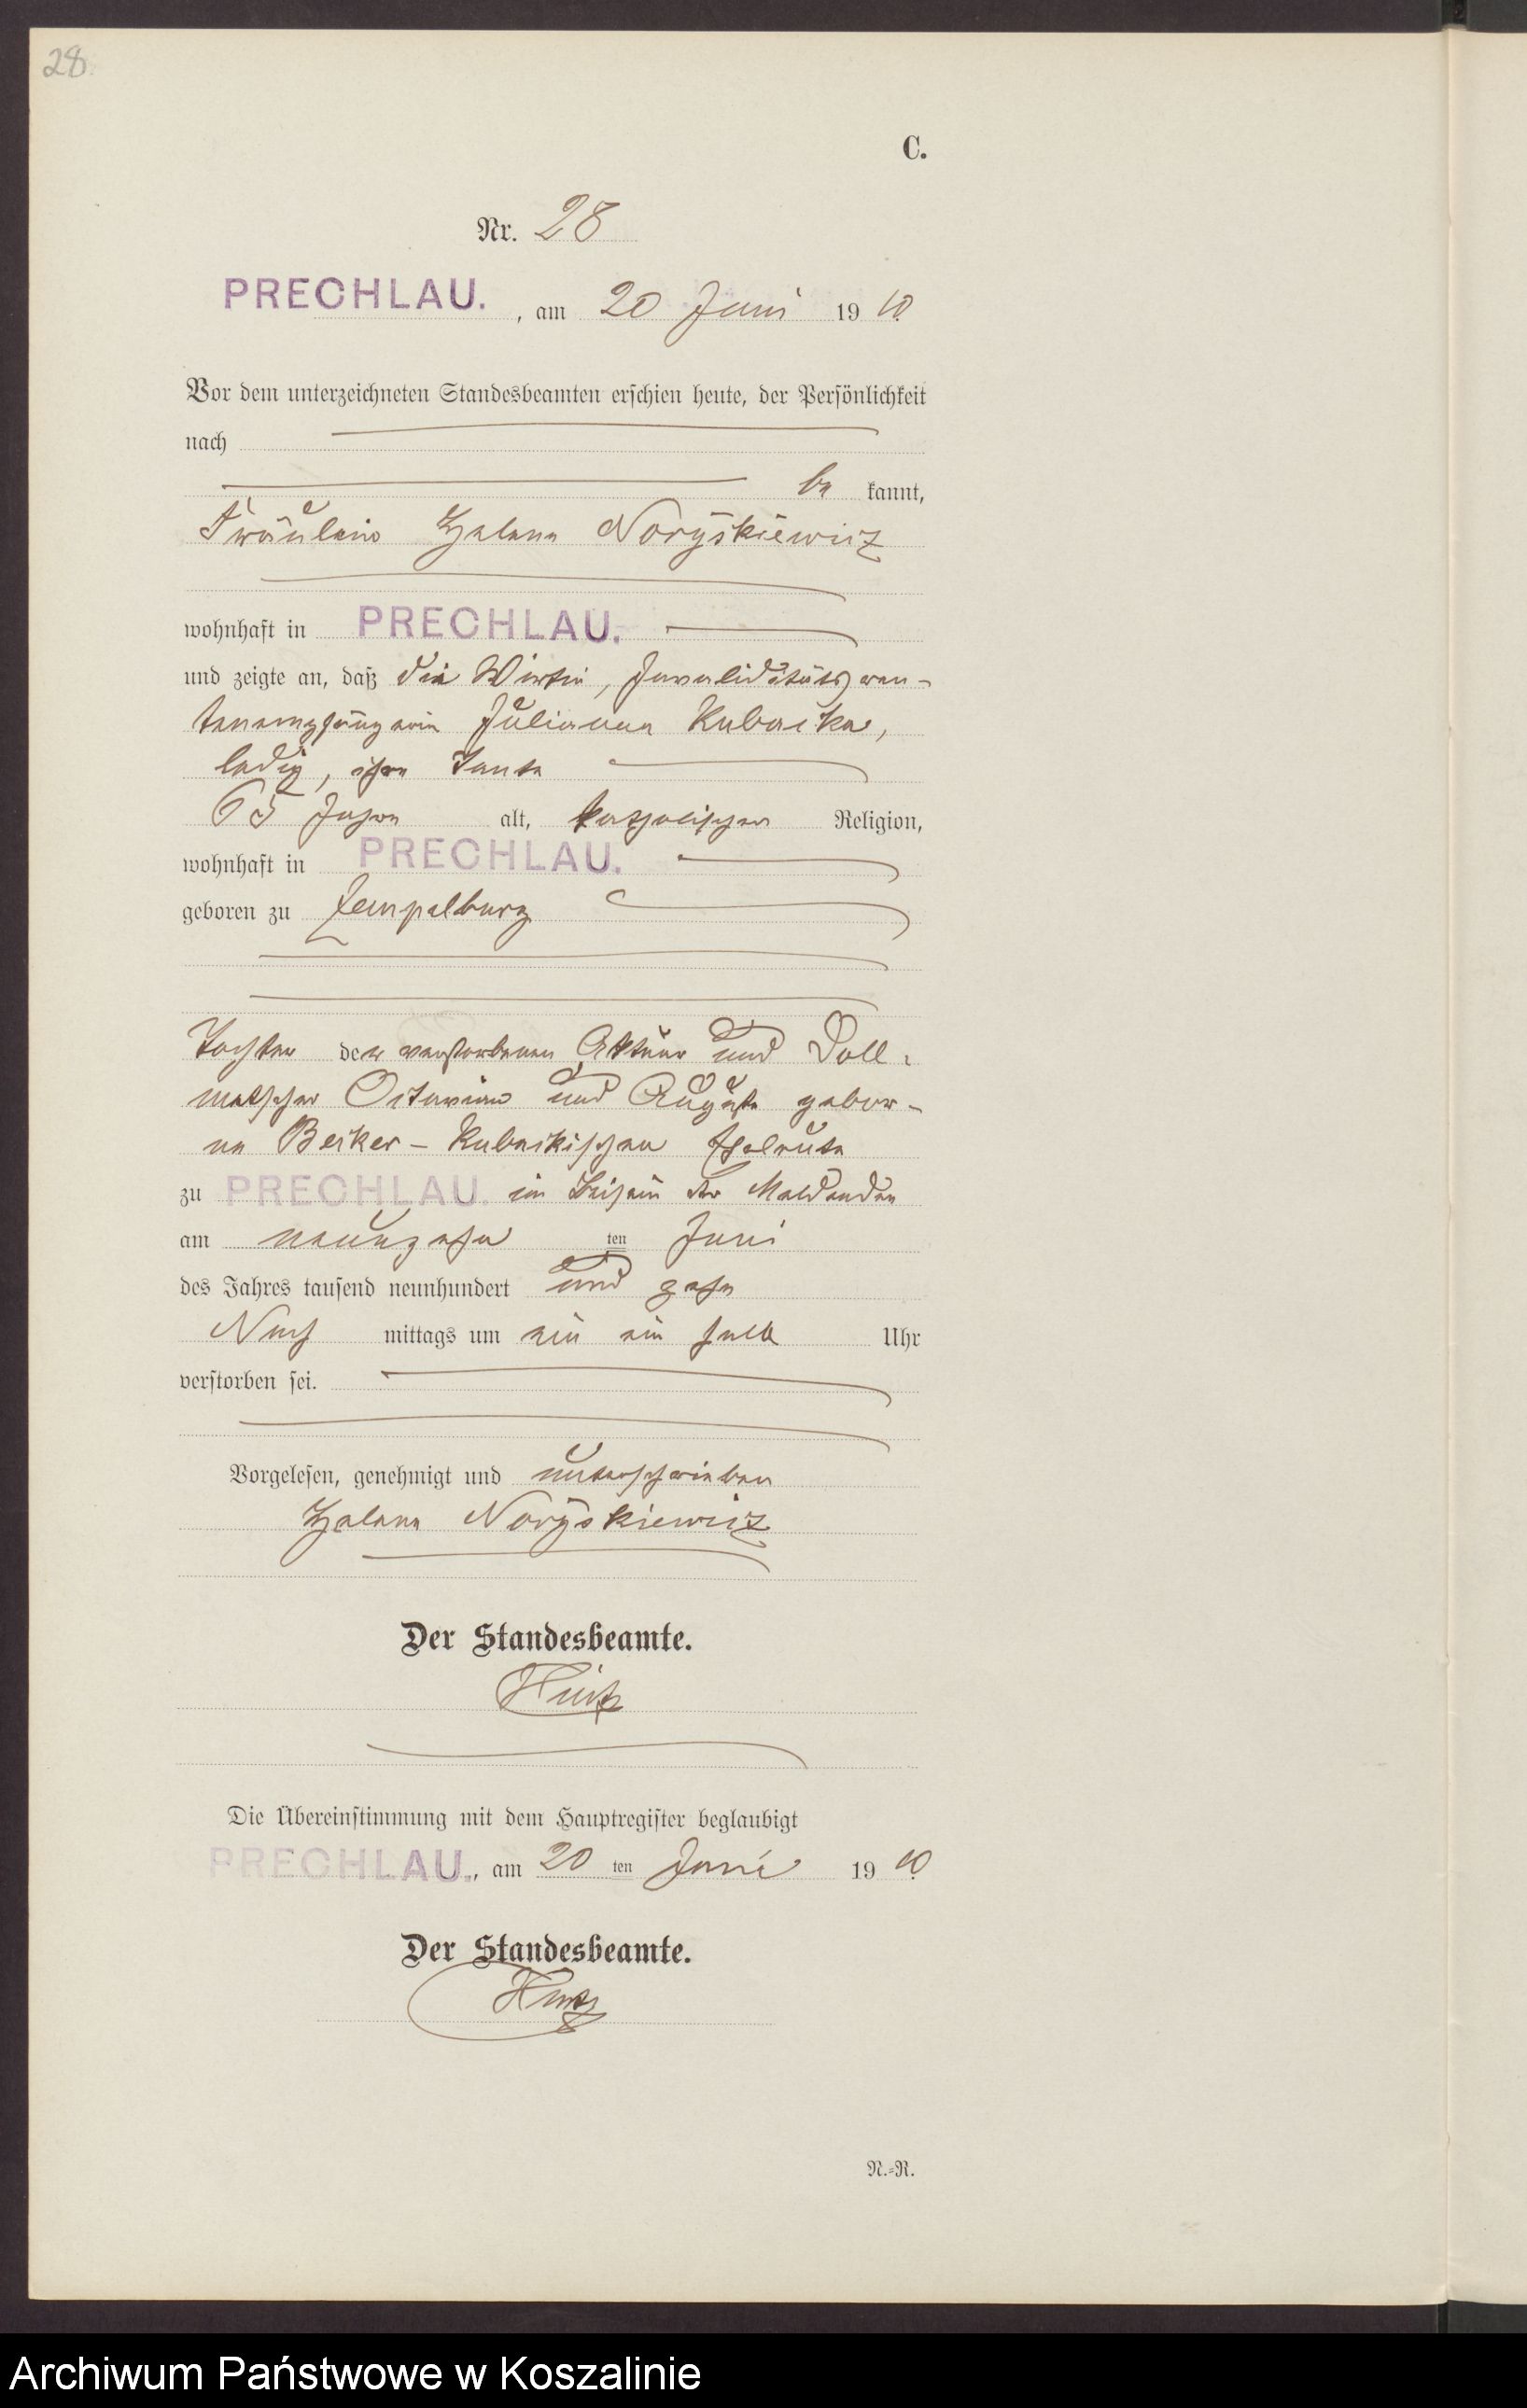 28
C.
Nr. 28
PRECHLAU. , am 20 Juni 1910.
Vor dem unterzeichneten Standesbeamten erschien heute, der Persönlichkeit
nach
be kannt,
Fräulein Helene Noryskiewicz
wohnhaft in PRECHLAU.
und zeigte an, daß die Wirtin, Invaliditätsren-
tenempfängerin Julianna Kubacka,
ledig, ihre Tante
65 Jahre alt, katholischer Religion,
wohnhaft in PRECHLAU.
geboren zu Zempelburg
Tochter der verstorbenen Aktuar und Doll-
metscher Octavian und Auguste gebor-
ne Becker - Kubackischen Eheleute
zu PRECHLAU. im Beisein der Meldenden
am neunzehn ten Juni
des Jahres tausend neunhundert und zehn
Nach mittags um ein ein halb Uhr
verstorben sei.
Vorgelesen, genehmigt und unterschrieben
Helene Noryskiewicz
Der Standesbeamte.
Die Übereinstimmung mit dem Hauptregister beglaubigt
PRECHLAU., am 20 ten Juni 1910.
Der Standesbeamte.
N.=R.
Archiwum Państwowe w Koszalinie